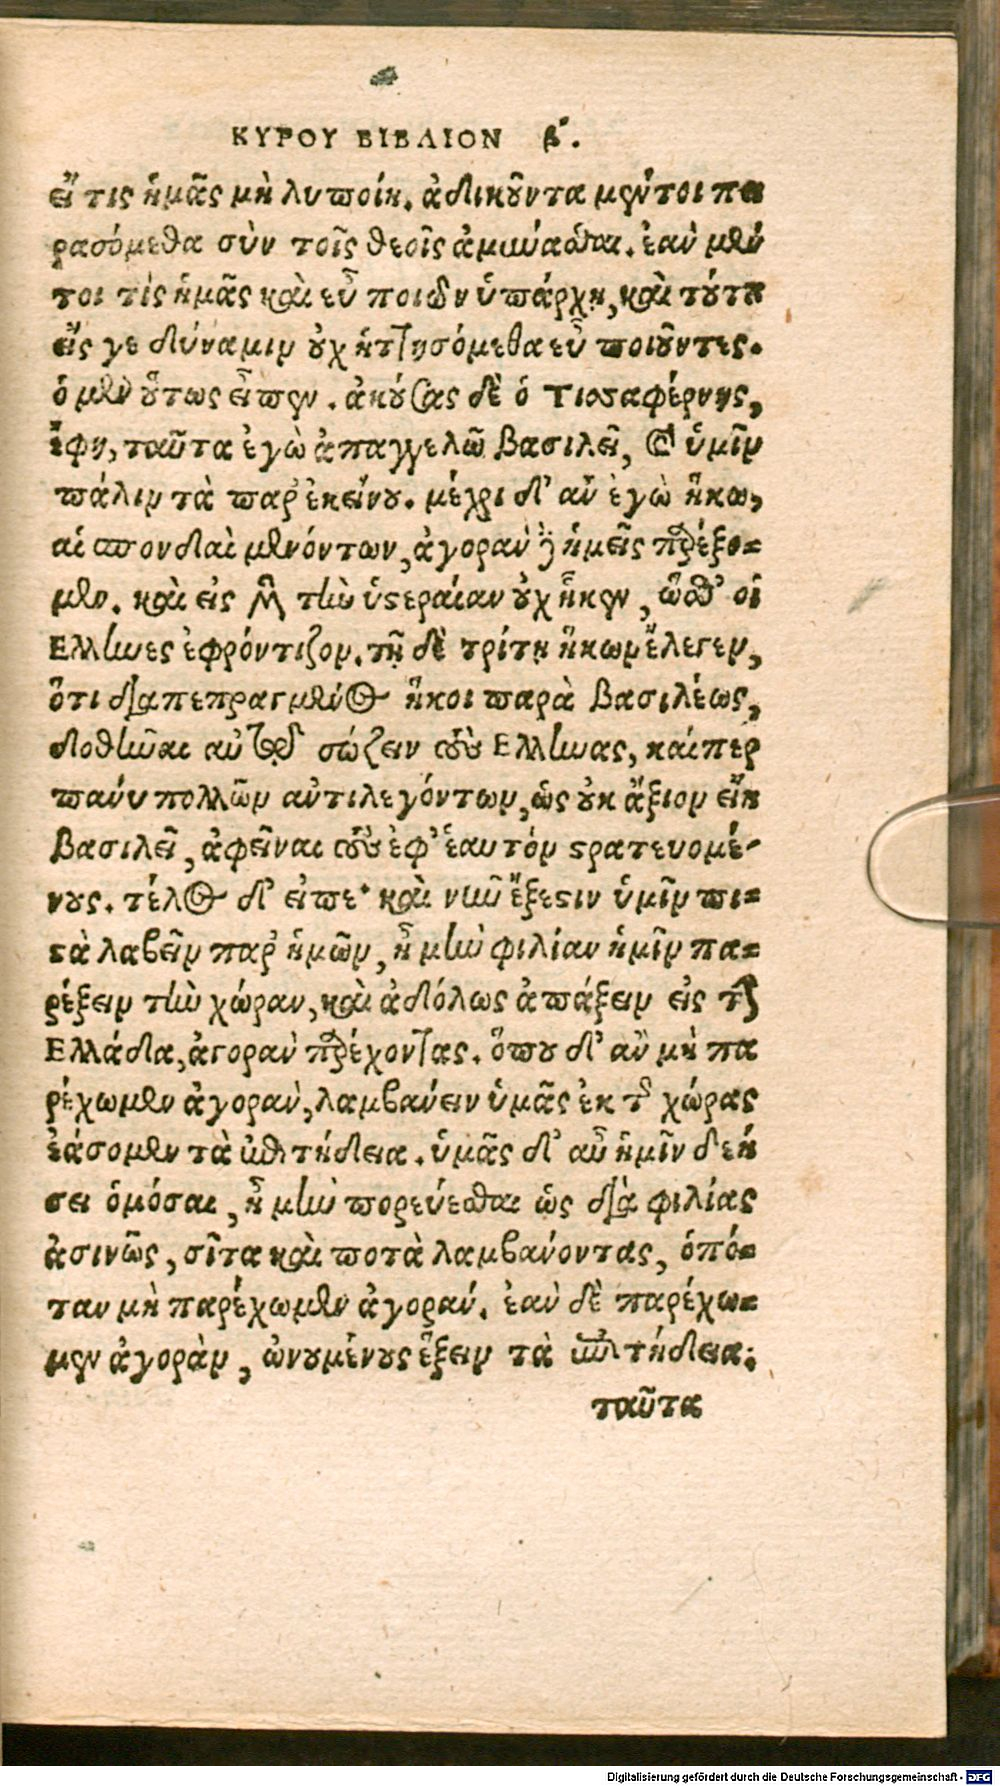 ΚΥΡΟΥ ΒΙΒΛΙΟΝ β΄.
εἴ τις ἡμᾶς μὴ λυποίη. ἀδικοῦντα μέντοι πει
ρασόμεθα σὺν τοῖς θεοῖς ἀμύναθαι. ἐὰν μέν
τοι τίς ἡμᾶς καὶ εὖ ποιῶν ὑπάρχῃ, καὶ τούτου
εἴς γε δύναμιν οὐχ ἡττησόμεθα εὖ ποιοῦντες.
ὁ μὲν οὕτως εἶπεν. ἀκούσας δὲ ὁ Τισσαφέρνης,
ἔφη, ταῦτα ἐγὼ ἀπαγγελῶ βασιλεῖ, καὶ ὑμῖν
πάλιν τὰ παρ' ἐκείνου. μέχρι δ' ἂν ἐγὼ ἥκω,
αἱ σπονδαὶ μενόντων, ἀγορὰν δὲ ἡμεῖς παρέξο-
μεν. καὶ εἰς μὲν τὴν ὑστεραίαν οὐχ ἧκεν, ὥσθ' οἱ
Ελληνες ἐφρόντιζον. τῇ δὲ τρίτῃ ἥκων ἔλεγεν,
ὅτι διαπεπραγμένος ἥκοι παρὰ βασιλέως,
δοθῆναι αὐτῷ σώζειν τοὺς Ελληνας, καίπερ
πάνυ πολλῶν ἀντιλεγόντων, ὡς οὐκ ἄξιον εἴη
βασιλεῖ, ἀφεῖναι τοὺς ἐφ' ἑαυτὸν στρατευομέ-
νους. τέλος δ' εἶπε· καὶ νῦν ἔξεστιν ὑμῖν πι-
στὰ λαβεῖν παρ' ἡμῶν, ἦ μὴν φιλίαν ἡμῖν πα-
ρέξειν τὴν χώραν, καὶ ἀδόλως ἀπάξειν εἰς τὴν
Ελλάδα, ἀγορὰν παρέχοντας. ὅπου δ' ἂν μὴ πα
ρέχωμεν ἀγορὰν, λαμβάνειν ὑμᾶς ἐκ τῆς χώρας
ἐάσομεν τὰ ἐπιτήδεια. ὑμᾶς δ' αὖ ἡμῖν δεή
σει ὀμόσαι, ἦ μὴν πορεύεσθαι ὡς διὰ φιλίας
ἀσινῶς, σῖτα καὶ ποτὰ λαμβάνοντας, ὁπό-
ταν μὴ παρέχωμεν ἀγοράν. ἐὰν δὲ παρέχω-
μεν ἀγορὰν, ὠνουμένους ἕξειν τὰ ἐπιτήδεια.
ταῦτα
Digitalisierung gefördert durch die Deutsche Forschungsgemeinschaft - DFG